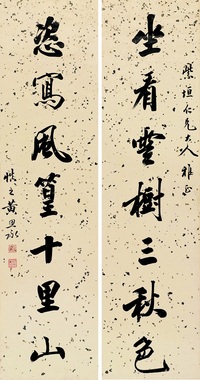 垣仁兄大人雅正
坐看雲樹三秋色
恣寫風篁十里山
慎之黃思永